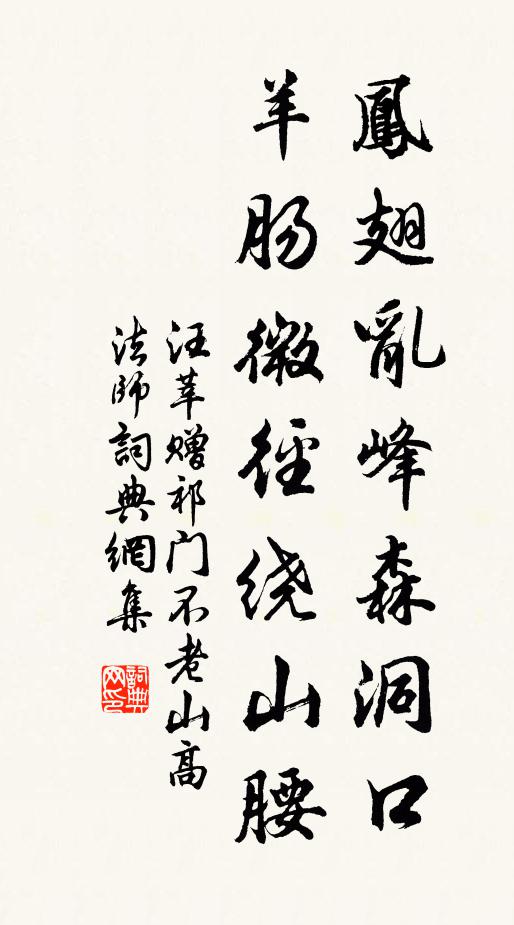 鳳翅亂峰森洞口
羊肠微径绕山腰
汪莘赠祁门不老山高
法師詞典網集
詞典网印